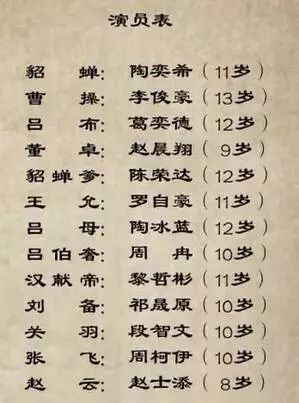 演员表
貂 蝉：陶奕希（11岁）
曹 操：李俊豪（13岁）
吕 布：葛奕德（12岁）
董 卓：赵晨翔（9岁）
貂蝉爹：陈荣达（12岁）
王 允：罗自豪（11岁）
吕 母：陶冰蓝（12岁）
吕伯奢：周 冉（10岁）
汉献帝：黎哲彬（11岁）
刘 备：祁晟原（10岁）
关 羽：段智文（10岁）
张 飞：周柯伊（10岁）
赵 云：赵士添（8岁）